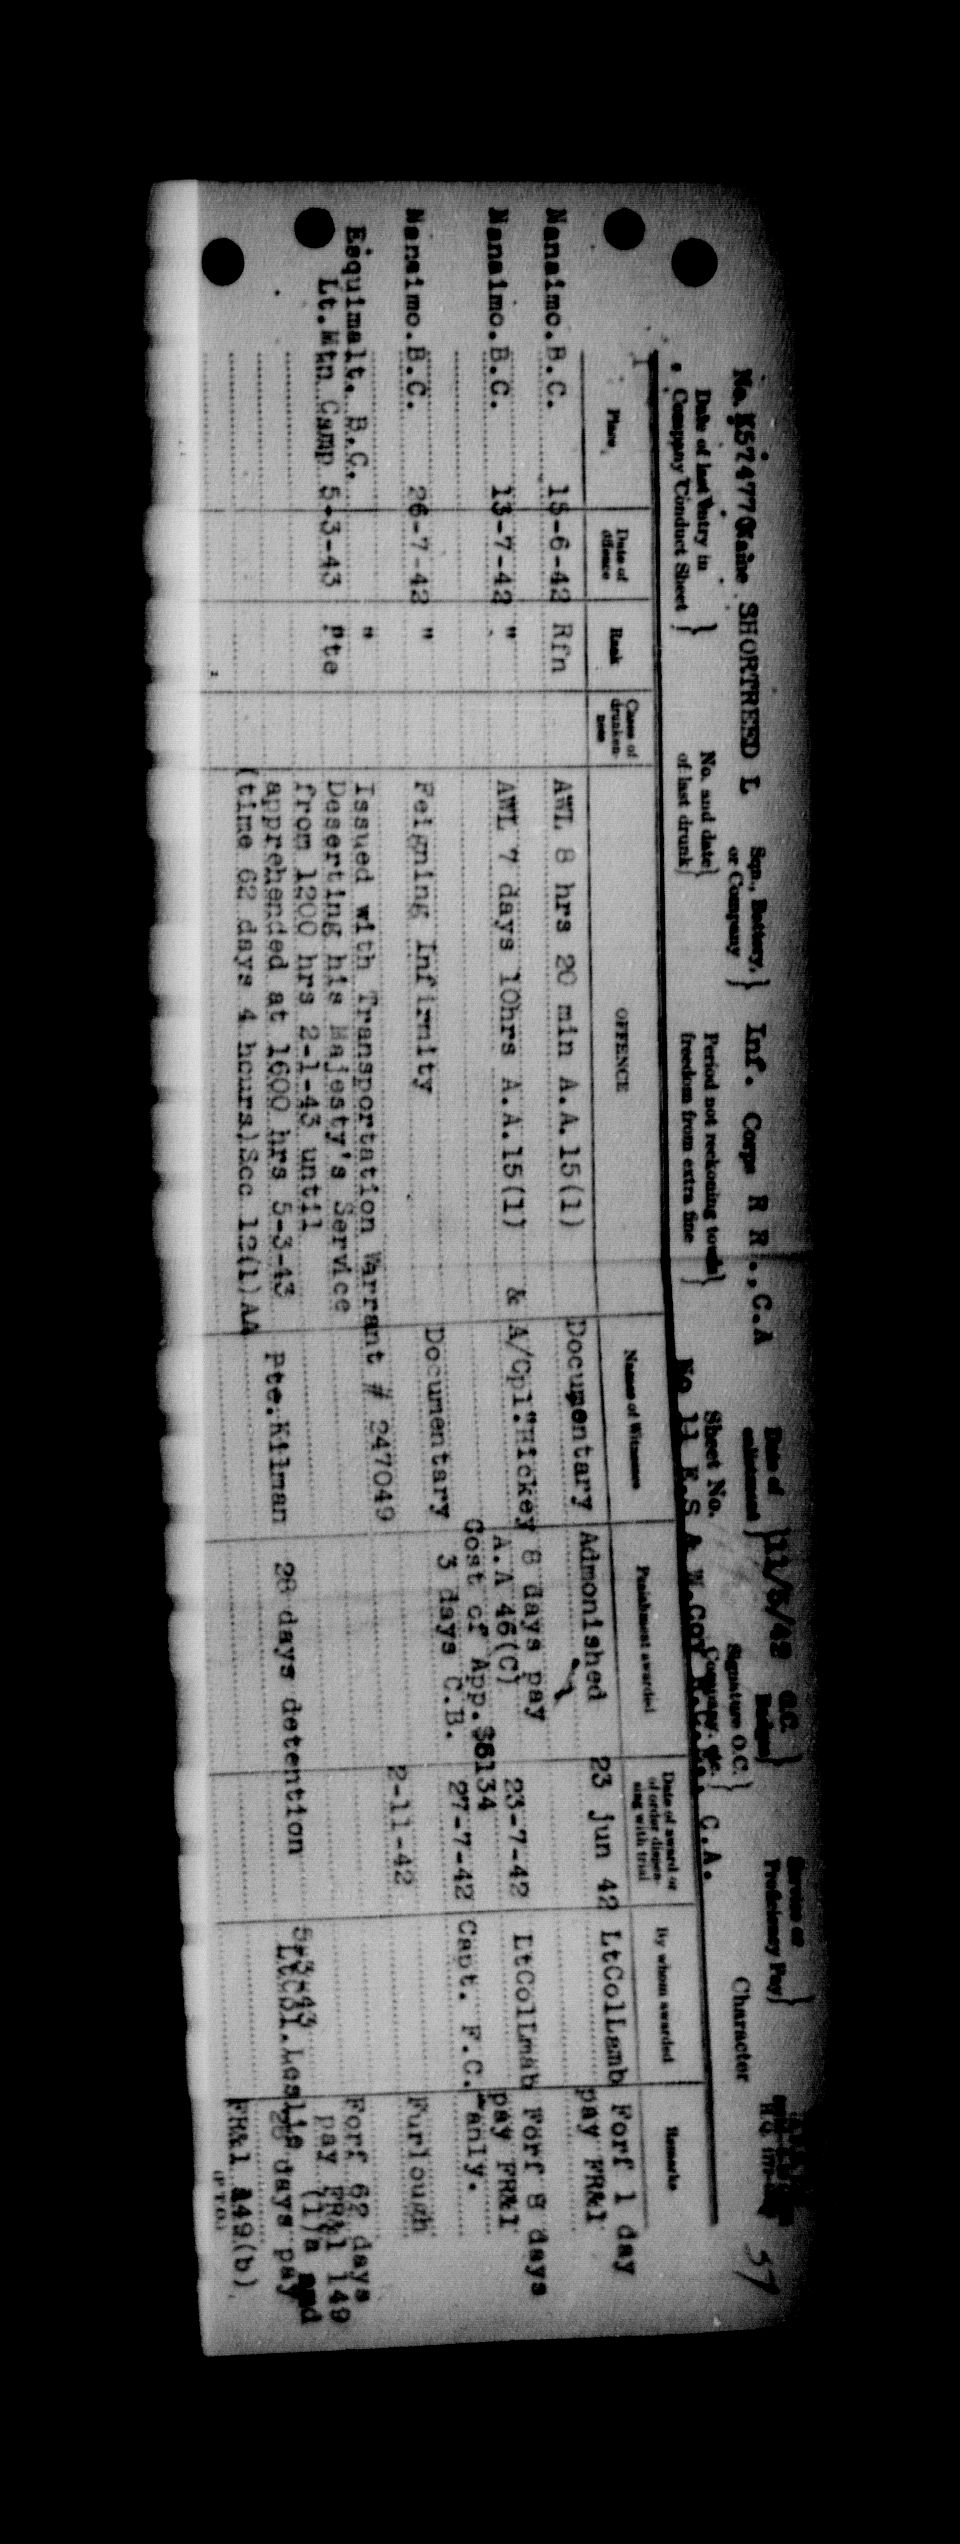 No. K574770 Name SHORTREED L Sqn., Battery, or Company } Inf. Corps R R ., C.A Date of enlistment } 11/5/42 GC Badges } Service or Proficiency Pay }
Date of last entry in Company Conduct Sheet } No. and date of last drunk } Period not reckoning towards freedom from extra fine } Sheet No. Signature O.C. Company, etc. } Character 57
No 11 E.S A W. C.A.
Place Date of offence Rank Cases of drunkenness OFFENCE Names of Witnesses Punishment awarded Date of award or of order dispensing with trial By whom awarded Remarks
Nanaimo.B.C. 15-6-42 Rfn AWL 8 hrs 20 min A.A.15(1) Documentary Admonished 23 Jun 42 LtColLamb Forf 1 day
pay FR&I
Nanaimo.B.C. 13-7-42 " AWL 7 days 10hrs A.A.15(1) & A/Cpl.Hickey 8 days pay 23-7-42 LtColLmab Forf 8 days
A.A 46(C) pay FR&I
Cost of App.$6134
Nanaimo.B.C. 26-7-42 " Feigning Infirmity Documentary 3 days C.B. 27-7-42 Capt. F.C. Manly.
Esquimalt. B.C. " Issued with Transportation Warrant # 247049 2-11-42 Furlough
Lt.Mtn Camp 5-3-43 Pte Deserting his Majesty's Service
from 1200 hrs 2-1-43 until Forf 62 days
apprehended at 1600 hrs 5-3-43 Pte.Kilman 28 days detention 5-3-43 pay FR&I 149
(time 62 days 4 hours)Sec 12(1)AA LtCol.Leslie (1)a and
28 days pay
FR&I 149(b)
(P.T.O.)